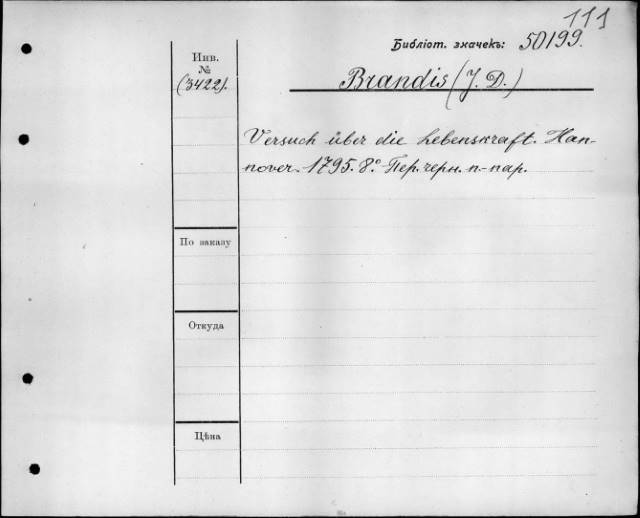 111
Библіот. значекъ: 50199.
Инв.
№
(3422).
Brandis (J. D.)
Versuch über die Lebenskraft. Han-
nover. 1795. 8.° Пер. черн. п.-пар.
По заказу
Откуда
Цѣна